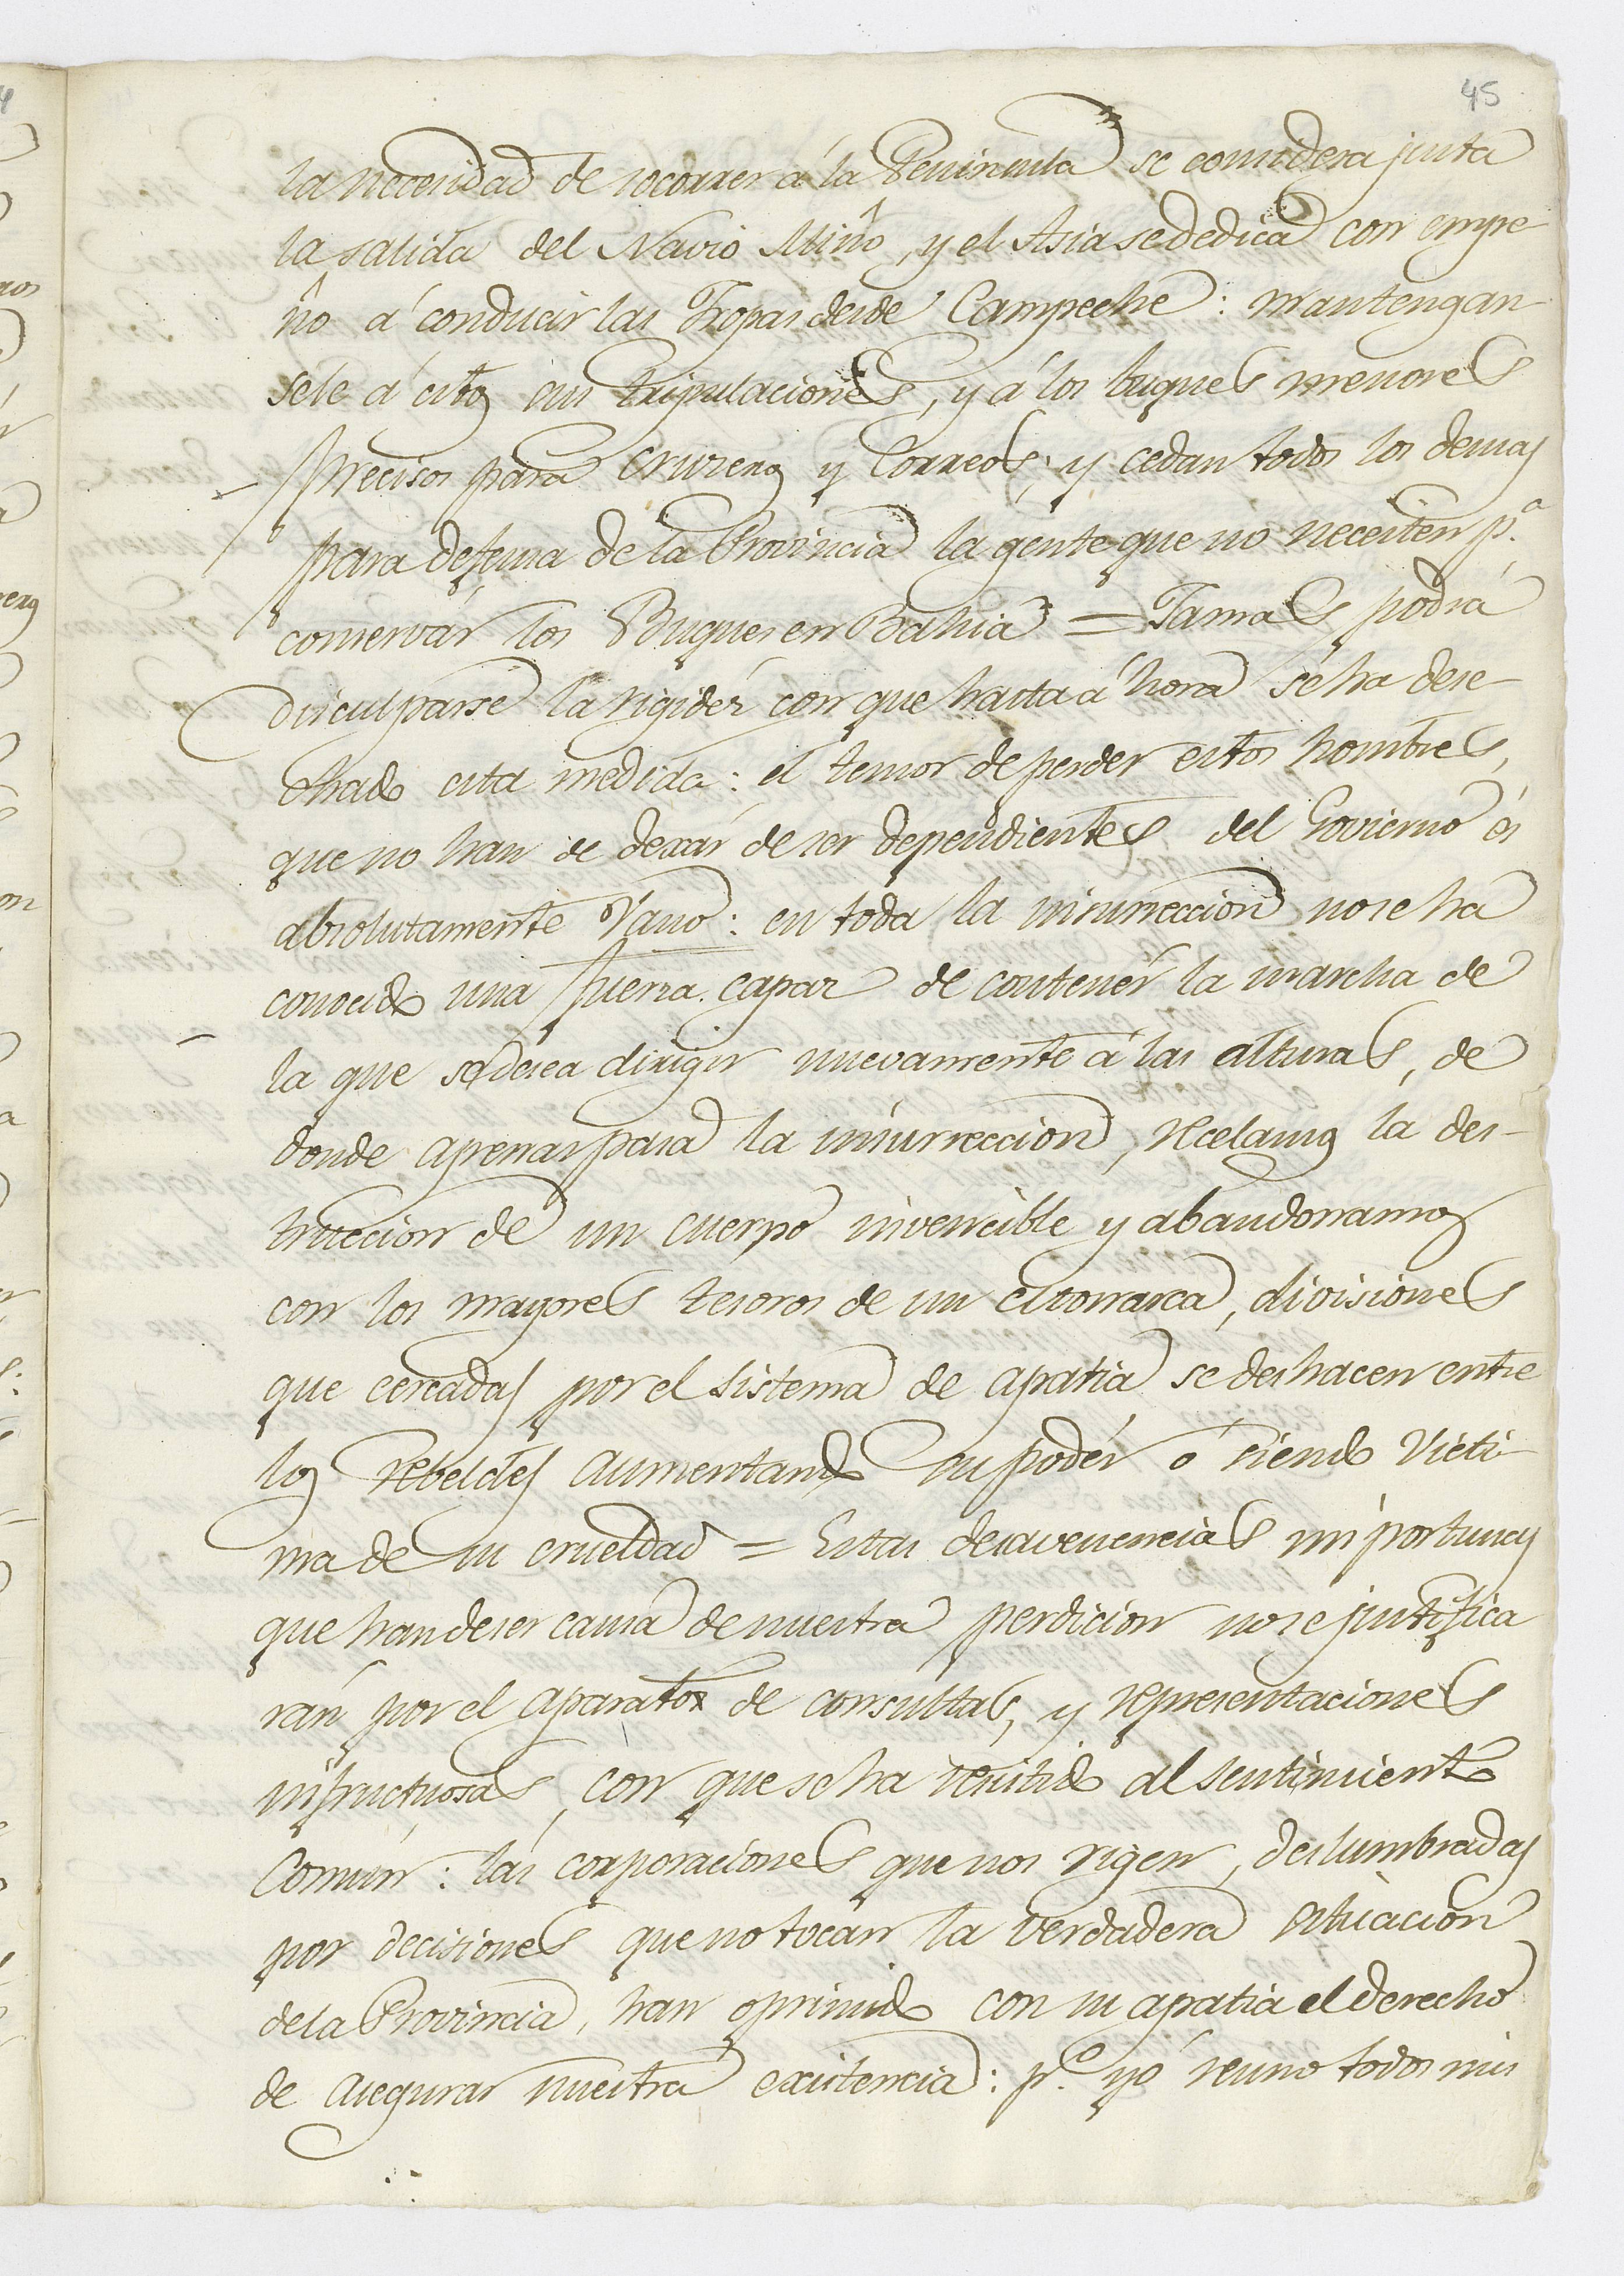 45
la necesidad de socorrer á la Peninsula se considera justa
la salida del Navio Miño, y el Asia se dedica con empe-
ño á conducir las Tropas desde Campeche: mantengan-
sele á estos sus tripulaciones, y á los buques menores
precisos para cruzeros y Correos; y cedan todos los demas
para defensa de la Provincia la gente que no necesiten p.ª
conservár los Buques en Bahia = Jamas podrá
disculparse la rigidéz con que hasta áhora se ha dese-
chado esta medida: el temor de perder estos hombres,
que no han de dexár de ser dependientes del Govierno és
absolutamente vano: en toda la insurreccion no se ha
conocido una fuerza capaz de contenér la marcha de
la que se desea dirigir nuevamente á las alturas, de
donde apenas pasa la insurreccion, recelamos la des-
truccion de un cuerpo invencible y abandonamos
con los mayores tesoros de un Monarca, divisiones
que cercadas por el sistema de apatia se deshacen entre
los rebeldes aumentando su podér ó siendo victi-
ma de su crueldad = Estas desavenencias importunas
que han de ser causa de nuestra perdicion no se justifica
rán por el aparato de consultas, y representaciones
infructuosas, con que se ha resistido al sentimiento
Comun: las corporaciones que nos rigen, deslumbradas
por decisiones que no tocan la verdadera situacion
de la Provincia, han oprimido con su apatia el derecho
de asegurar nuestra existencia: p.º yo reuno todos mis